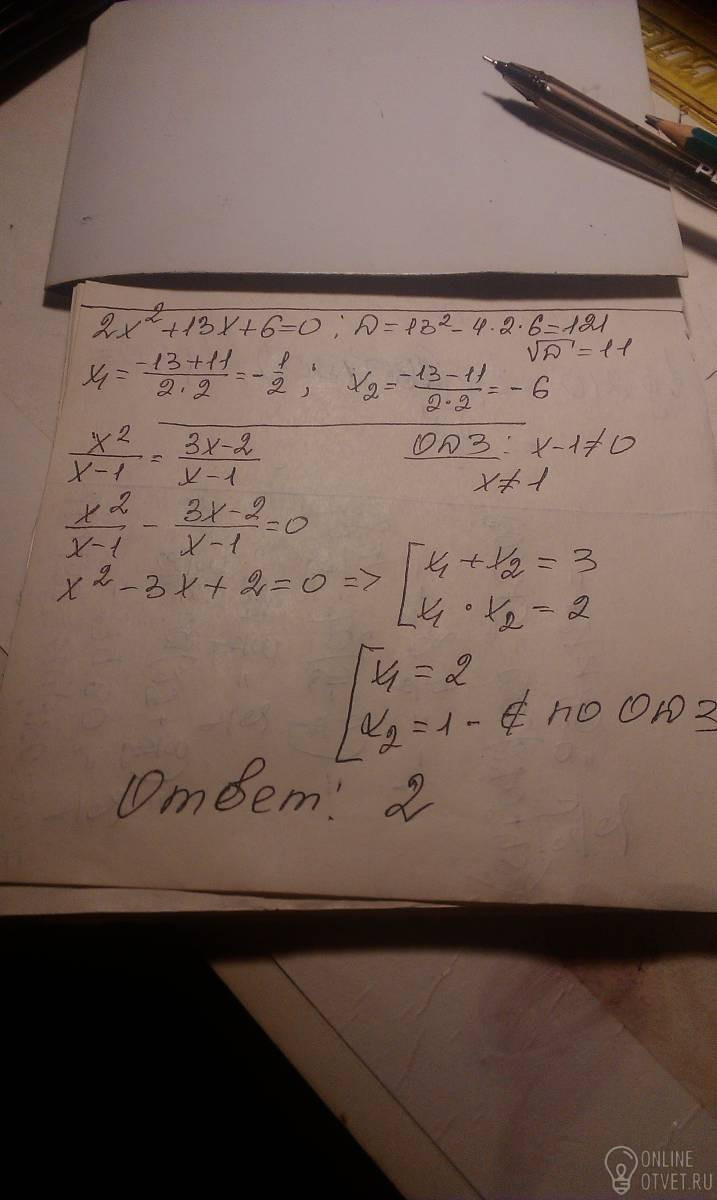 2x²+13x+6=0; D=13²-4·2·6=121
√D=11
x₁=(-13+11)/(2·2)=-1/2; x₂=(-13-11)/(2·2)=-6
x²/(x-1)=(3x-2)/(x-1) ОДЗ: x-1≠0
x≠1
x²/(x-1)-(3x-2)/(x-1)=0
x²-3x+2=0=>[x₁+x₂=3
x₁·x₂=2
[x₁=2
x₂=1-∉ по ОДЗ
Ответ: 2
ONLINE
OTVET.RU